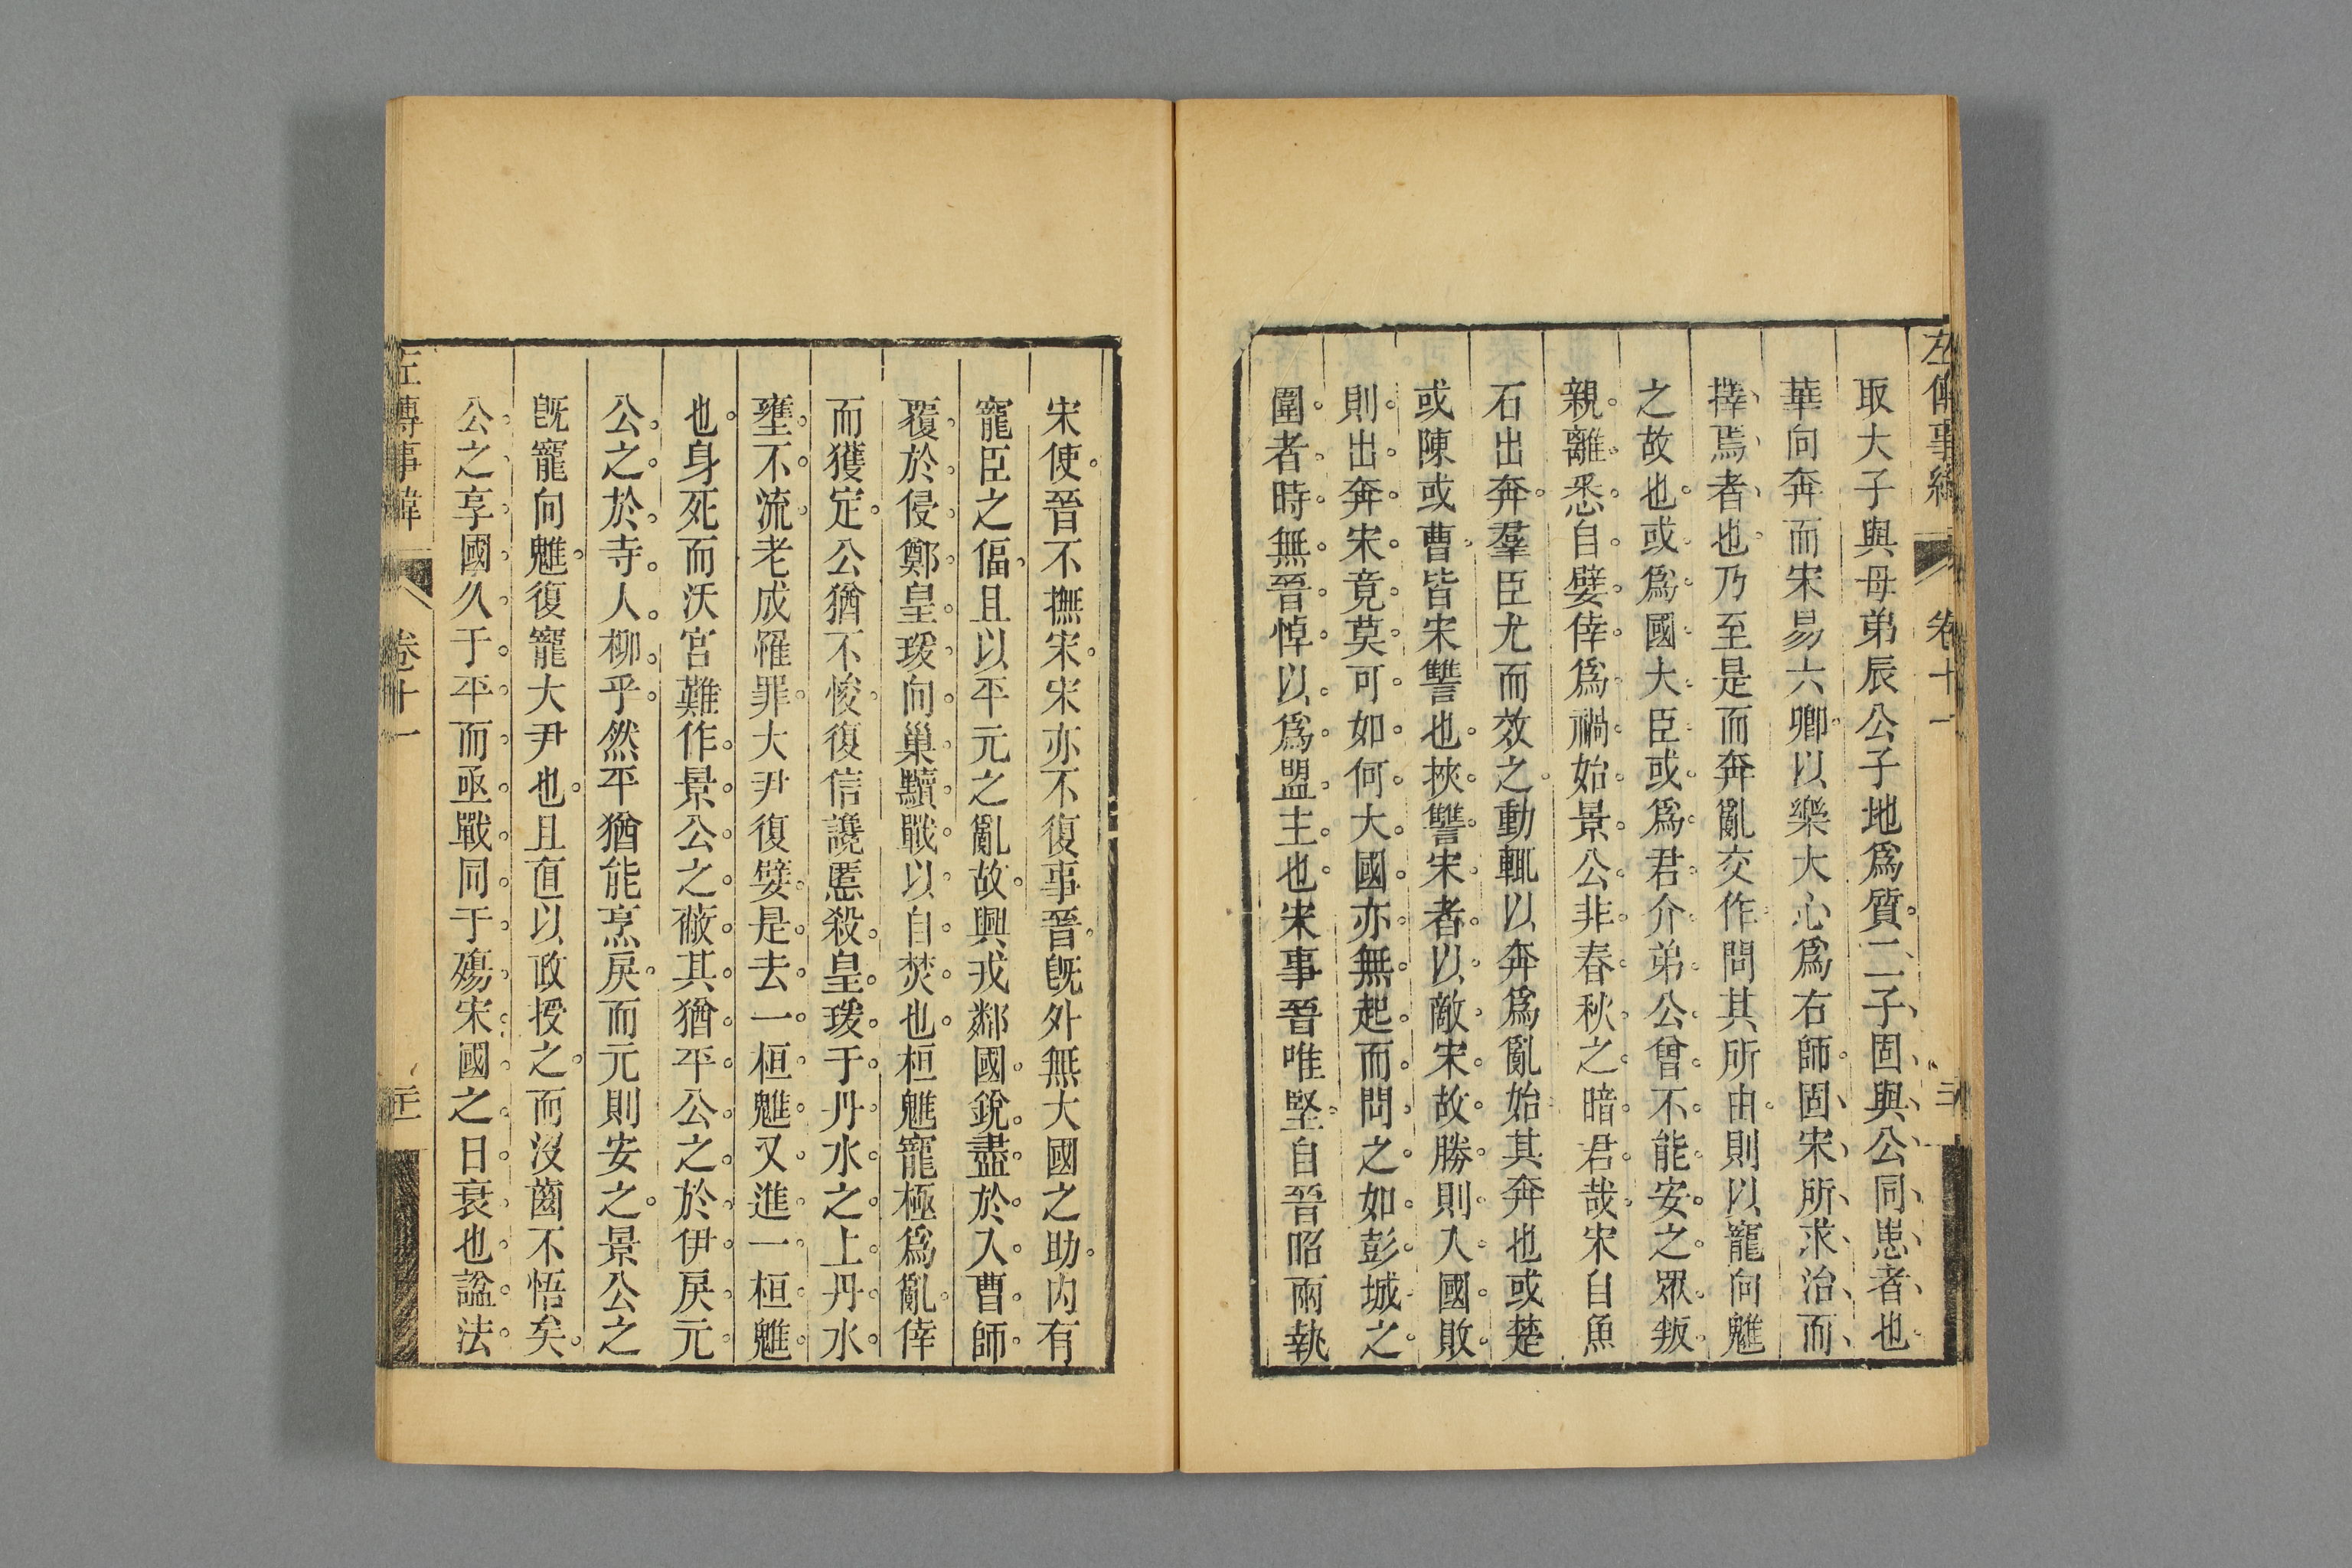 左傳事緯 卷十一
取大子與母弟辰公子地爲質二子固與公同患者也
華向奔而宋易六卿以樂大心爲右師固宋所求治而
擇焉者也乃至是而奔亂交作問其所由則以寵向魋
之故也或爲國大臣或爲君介弟公曾不能安之眾叛
親離悉自嬖倖爲禍始景公非春秋之暗君哉宋自魚
石出奔羣臣尤而效之動輒以奔爲亂始其奔也或楚
或陳或曹皆宋讐也挾讐宋者以敵宋故勝則入國敗
則出奔宋竟莫可如何大國亦無起而問之如彭城之
圍者時無晉悼以爲盟主也宋事晉唯堅自晉昭兩執
宋使晉不撫宋宋亦不復事晉旣外無大國之助內有
寵臣之偪且以平元之亂故興戎鄰國銳盡於入曹師
覆於侵鄭皇瑗向巢黷戰以自焚也桓魋寵極爲亂倖
而獲定公猶不悛復信讒慝殺皇瑗于丹水之上丹水
壅不流老成罹罪大尹復嬖是去一桓魋又進一桓魋
也身死而沃宮難作景公之蔽其猶平公之於伊戾元
公之於寺人柳乎然平猶能烹戾而元則安之景公之
旣寵向魋復寵大尹也且直以政授之而沒齒不悟矣
公之享國久于平而亟戰同于殤宋國之日衰也諡法
左傳事緯 卷十一